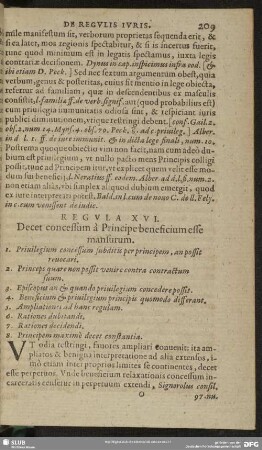 DE REGVLIS IVRIS. 209
niſſe manifeſtum ſit, verborum proprietas ſequenda erit, &
ſi ea lateat, mos regionis ſpectabitur, & ſi is incertus fuerit,
tunc quod minimum eſt in legatis ſpectamus, iuxta legis
contrariæ deciſionem. Dynus in cap. inſpicimus infra eod. [&
ibi etiam D. Peck. ] Sed nec ſextum argumentum obeſt, quia
verbum, genus & poſteritas, cuius fit mentio in lege obiecta,
refertur ad familiam, quæ in deſcendentibus ex maſculis
conſiſtit, l. familia ff. de verb. ſignif. aut (quod probabilius eſt)
cum priuilegio immunitatis odioſa ſint, & reſpiciant iuris
publici diminutionem, vtique reſtringi debent. [conf. Gail. 2.
obſ. 2. num 14. Mynſ. 4. obſ. 70. Peck. d. ad c. priuileg. ] Alber.
in d. l. 1. ff. de iure immunit. & in dicta lege finali, num. 10.
Poſtremo quoque obiectio vim non facit, nam cum adeo dubium
eſt priuilegium, vt nullo pacto mens Principis colligi
poſſit, tunc ad Principem itur, vt explicet quem velit eſſe modum
ſui beneficij. d. l. Neratius ff. eodem. Alber ad d. l. 3. num. 2.
non etiam alias, vbi ſimplex aliquod dubium emergit, quod
ex iure interpretari poteſt. Bald. in l. cum de nouo C. de ll. Felyn.
in c. cum veniſſent de iudic.
REGVLA XVI.
Decet conceſſum à Principe beneficium eſſe
manſurum.
1. Priuilegium conceſſum ſubditis per principem, an poſſit
reuocari.
2. Princeps quare non poſſit venire contra contractum
ſuum.
3. Epiſcopus an & quando priuilegium concedere poſſit.
4. Beneficium & priuilegium principis quomodo differant.
5. Ampliationes ad hanc regulam.
6. Rationes dubitandi.
7. Rationes decidendi.
8. Principem maximè decet conſtantia.
VT odia reſtringi, fauores ampliari conuenit; ita ampliatos
& benigna interpretatione ad alia extenſos, imò
etiam inter proprios limites ſe continentes, decet
eſſe perpetuos. Vnde beneficium relaxationis conceſſum incarceratis
cenſetur in perpetuum extendi, Signorolus conſil.
O 97. nu.
SLUB